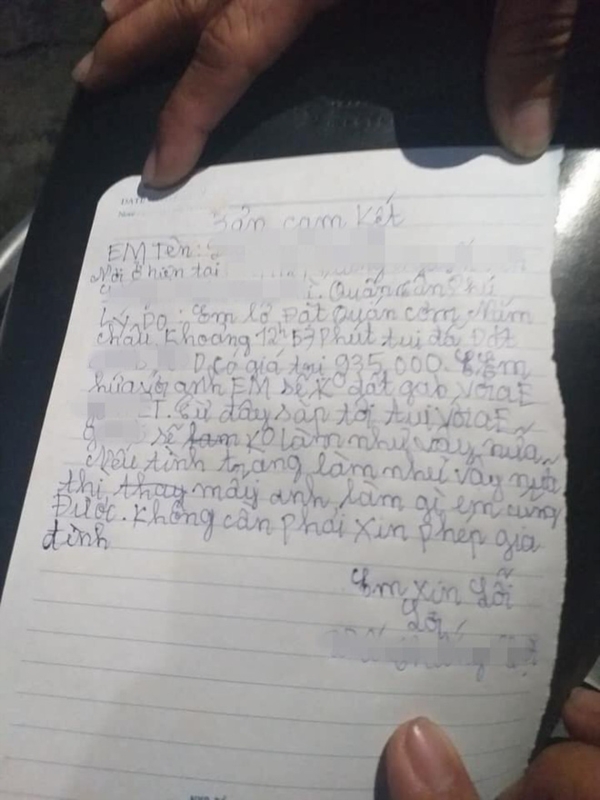 DATE
Bản cam kết
EM tên:
Nơi ở hiện tại
Quận Tân Phú
Lý Do: Em lở Đặt Quán cơm Năm
châu. Khoảng 12h57 Phút tui đã Đặt
có giá trị 935,000. Em
hứa với anh EM sẽ Ko đặt gab với aE
T. Từ đây sắp tới tui với aE
sẽ Ko làm như vậy nữa
Nếu tình trạng làm như vậy nữa
thì mấy anh làm gì em cũng
Được. Không cần phải xin phép gia
đình
Em xin Lỗi